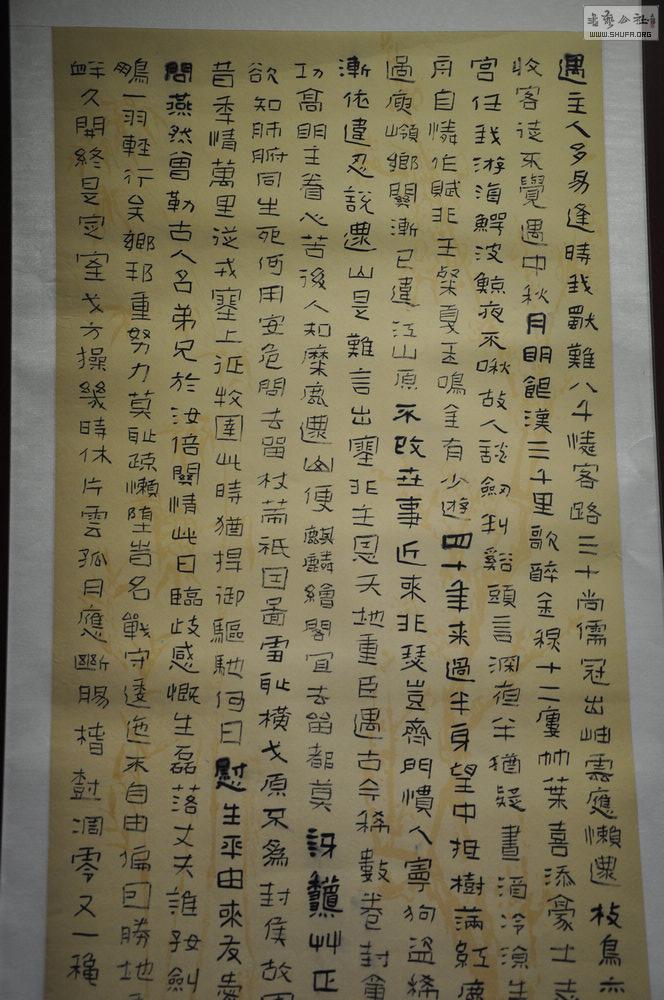 遇主人多易逢時我獨難八千憐客路三十尚儒冠出岫雲應懶還枝鳥亦
收客途不覺遇中秋月明銀漢三千里歌醉金樽十二樓竹葉喜添豪士志
宮任我游海鰐波鯨夜不啾故人談劍到谿頭言深夜半猶疑晝酒冷涼生
舟自憐作賦非王粲戛玉鳴金有少遊四十年來過半身望中祇樹滿紅塵
過庾嶺鄉關漸已違江山原不改世事近來非瑟豈齊門慣人寧狗盜稀
漸依違忍說還山是難言出塞非主恩天地重臣遇古今稀數卷封
功高明主眷心苦後人知麋鹿還山便麒麟繪閣宜去留都莫訝穐艸正
欲知肺腑同生死何用安危問去留杖策祇因圖雪恥橫戈原不為封侯故園
昔年情萬里從戎塞上征牧圉此時猶捍御驅馳何日慰生平由來友愛
問燕然曾勒古人名弟兄於汝倍關情此日臨歧感慨生磊落丈夫誰好劍
鵬一羽輕行矣鄉邦重努力莫恥疏懶墮皆名戰守逶迤不自由偏因勝地
衅久開終是定室戈方操幾時休片雲孤月應斷腸樁樹凋零又一穐
WWW.SHUFA.ORG